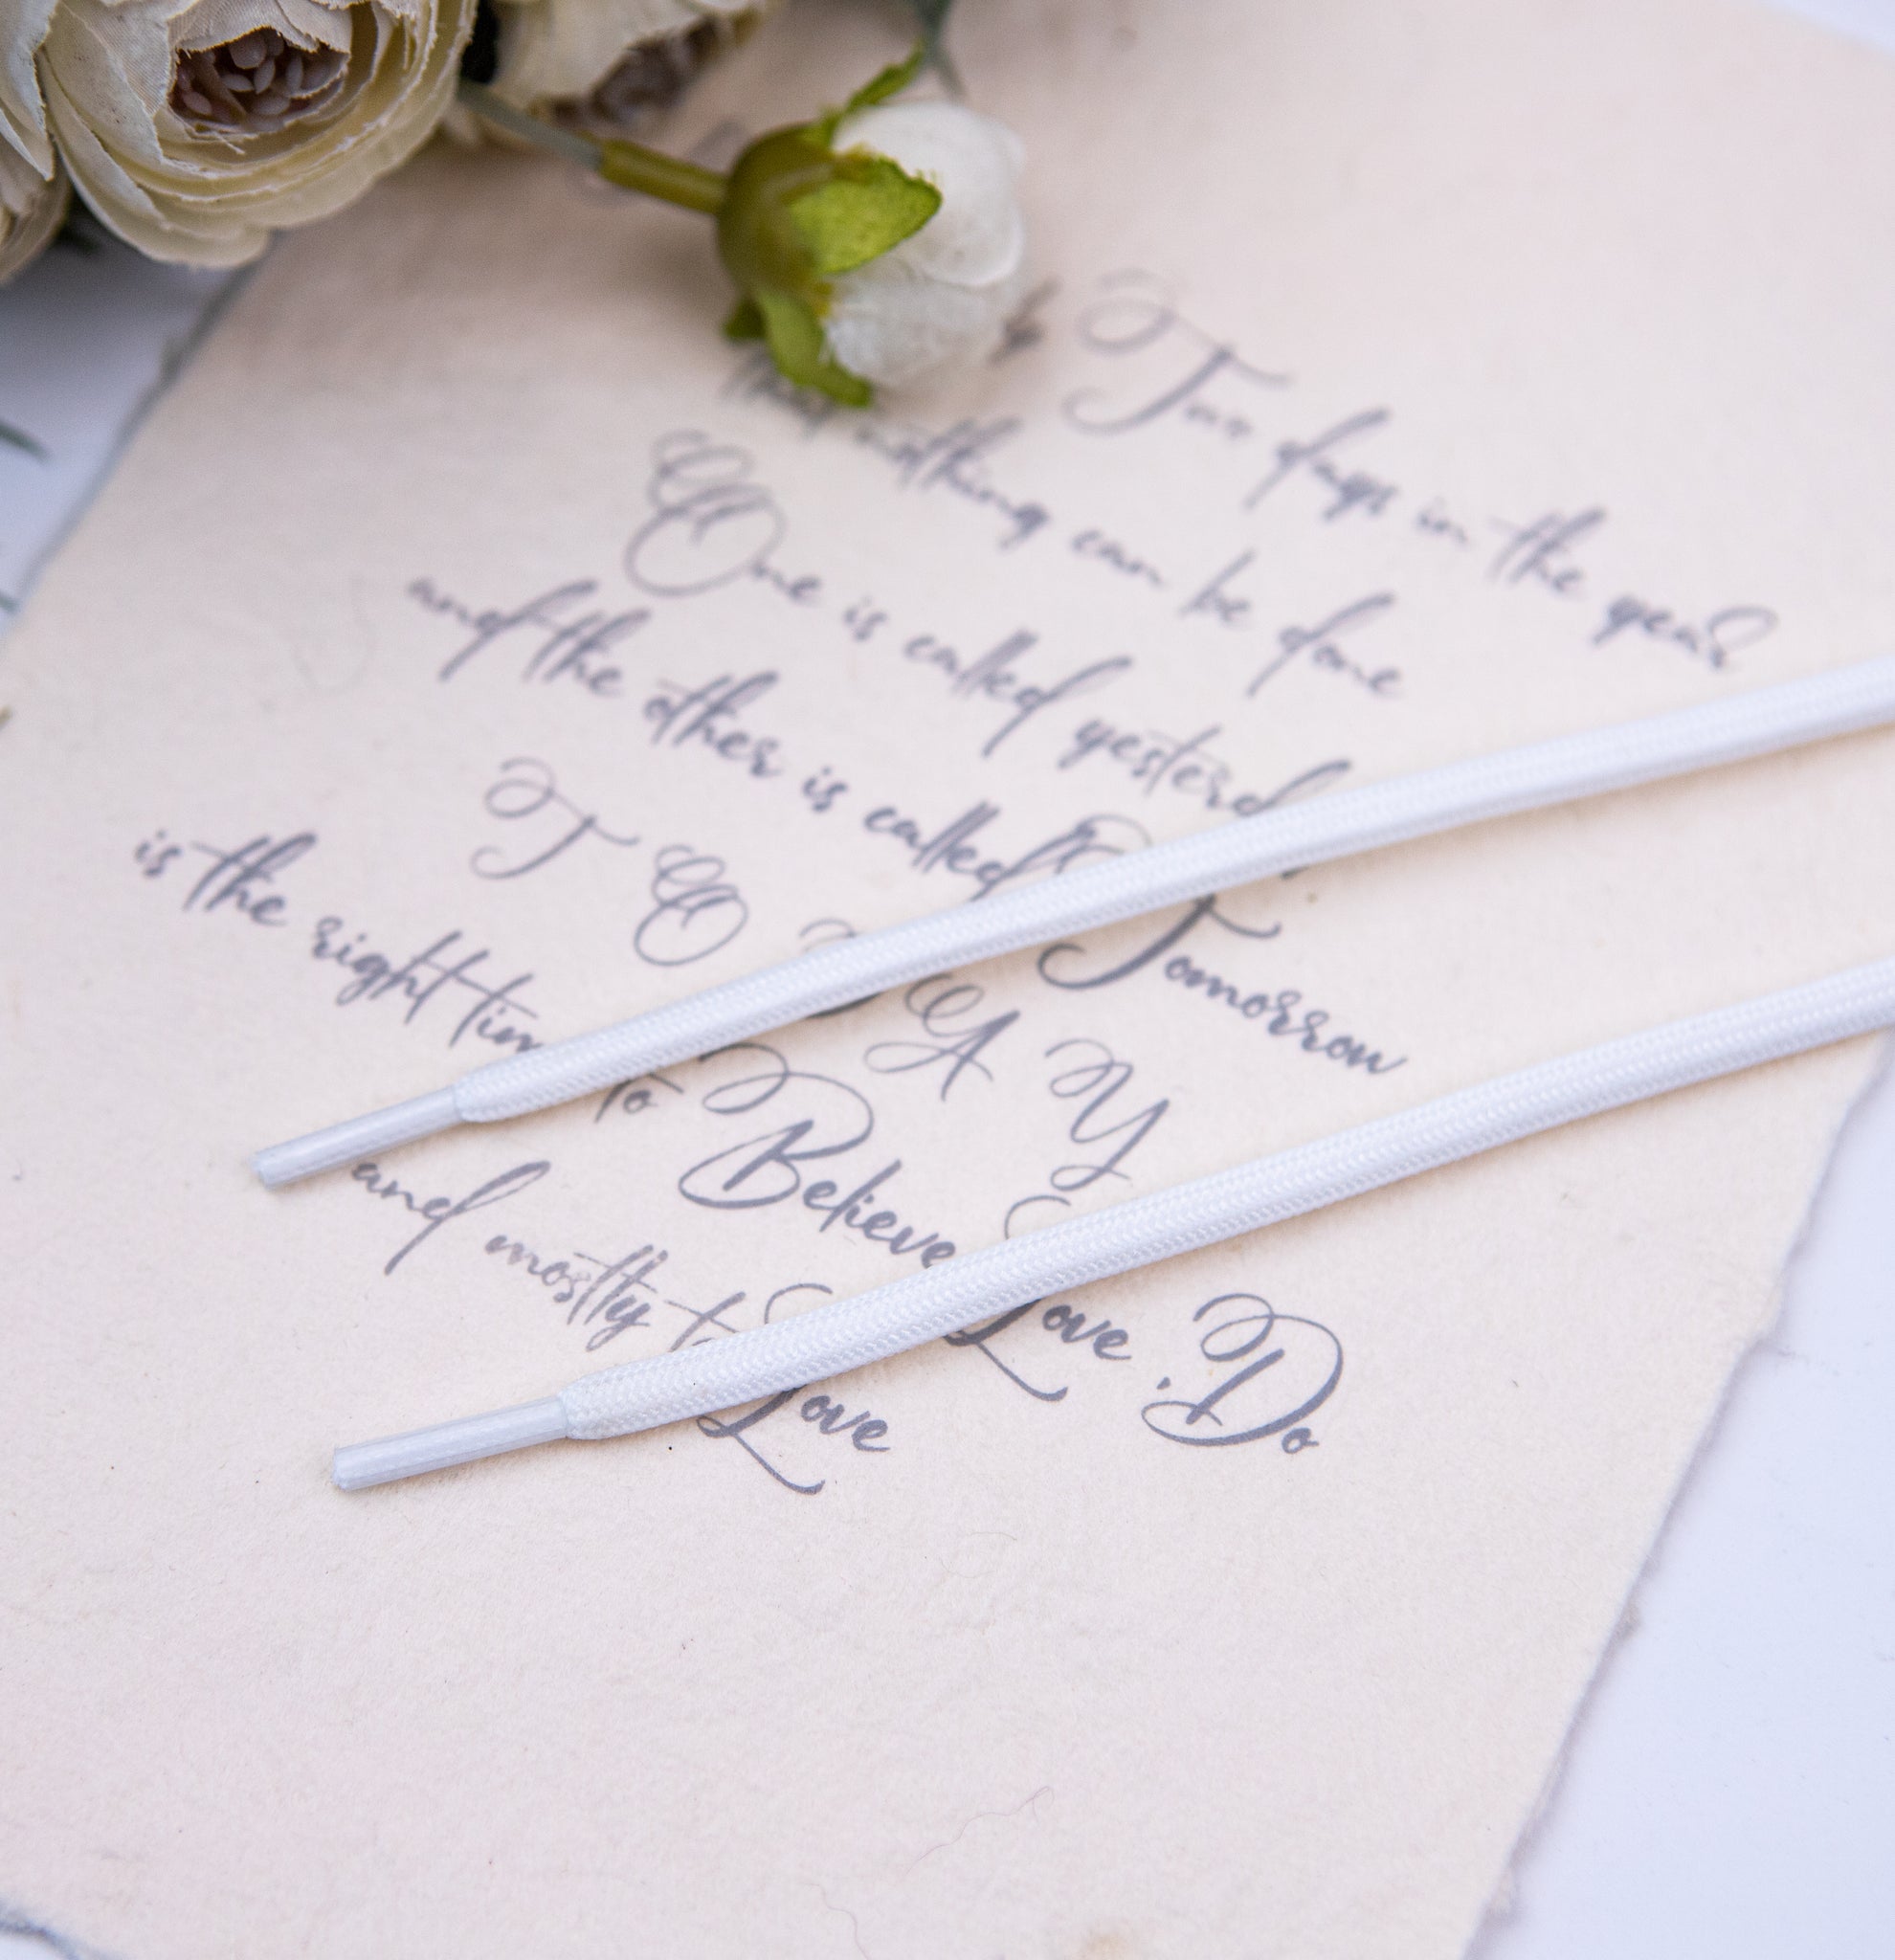 Two days in the year
that nothing can be done
One is called yesterd
and the other is called Tomorrow
T O D A Y
is the right tim to Believe Love , Do
and mostly to Love